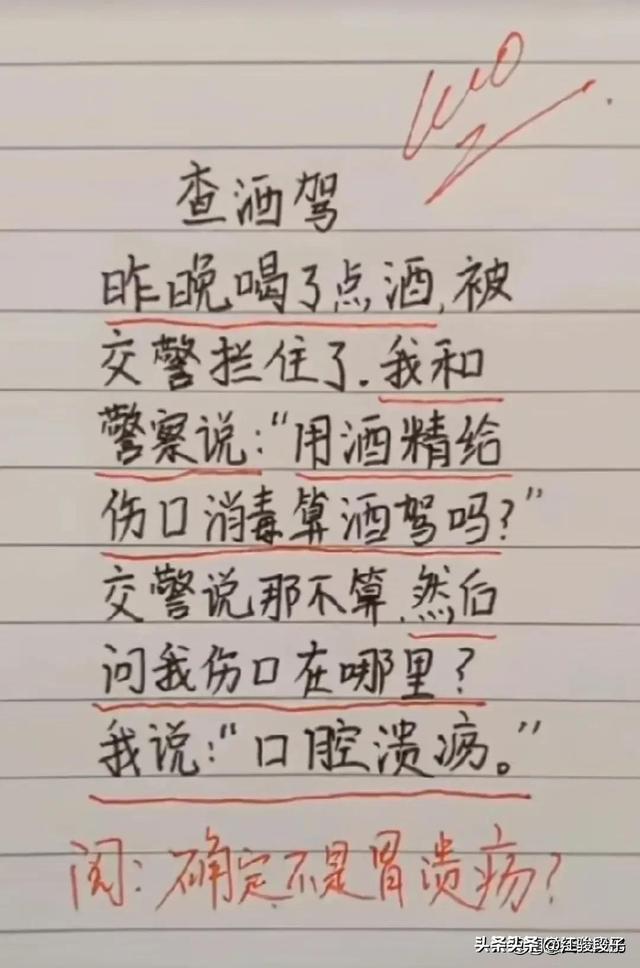 查酒驾
昨晚喝了点酒,被
交警拦住了.我和
警察说:“用酒精给
伤口消毒算酒驾吗?”
交警说那不算,然后
问我伤口在哪里?
我说:“口腔溃疡。”
阅:确定不是胃溃疡?
头条头条 @红骏段子